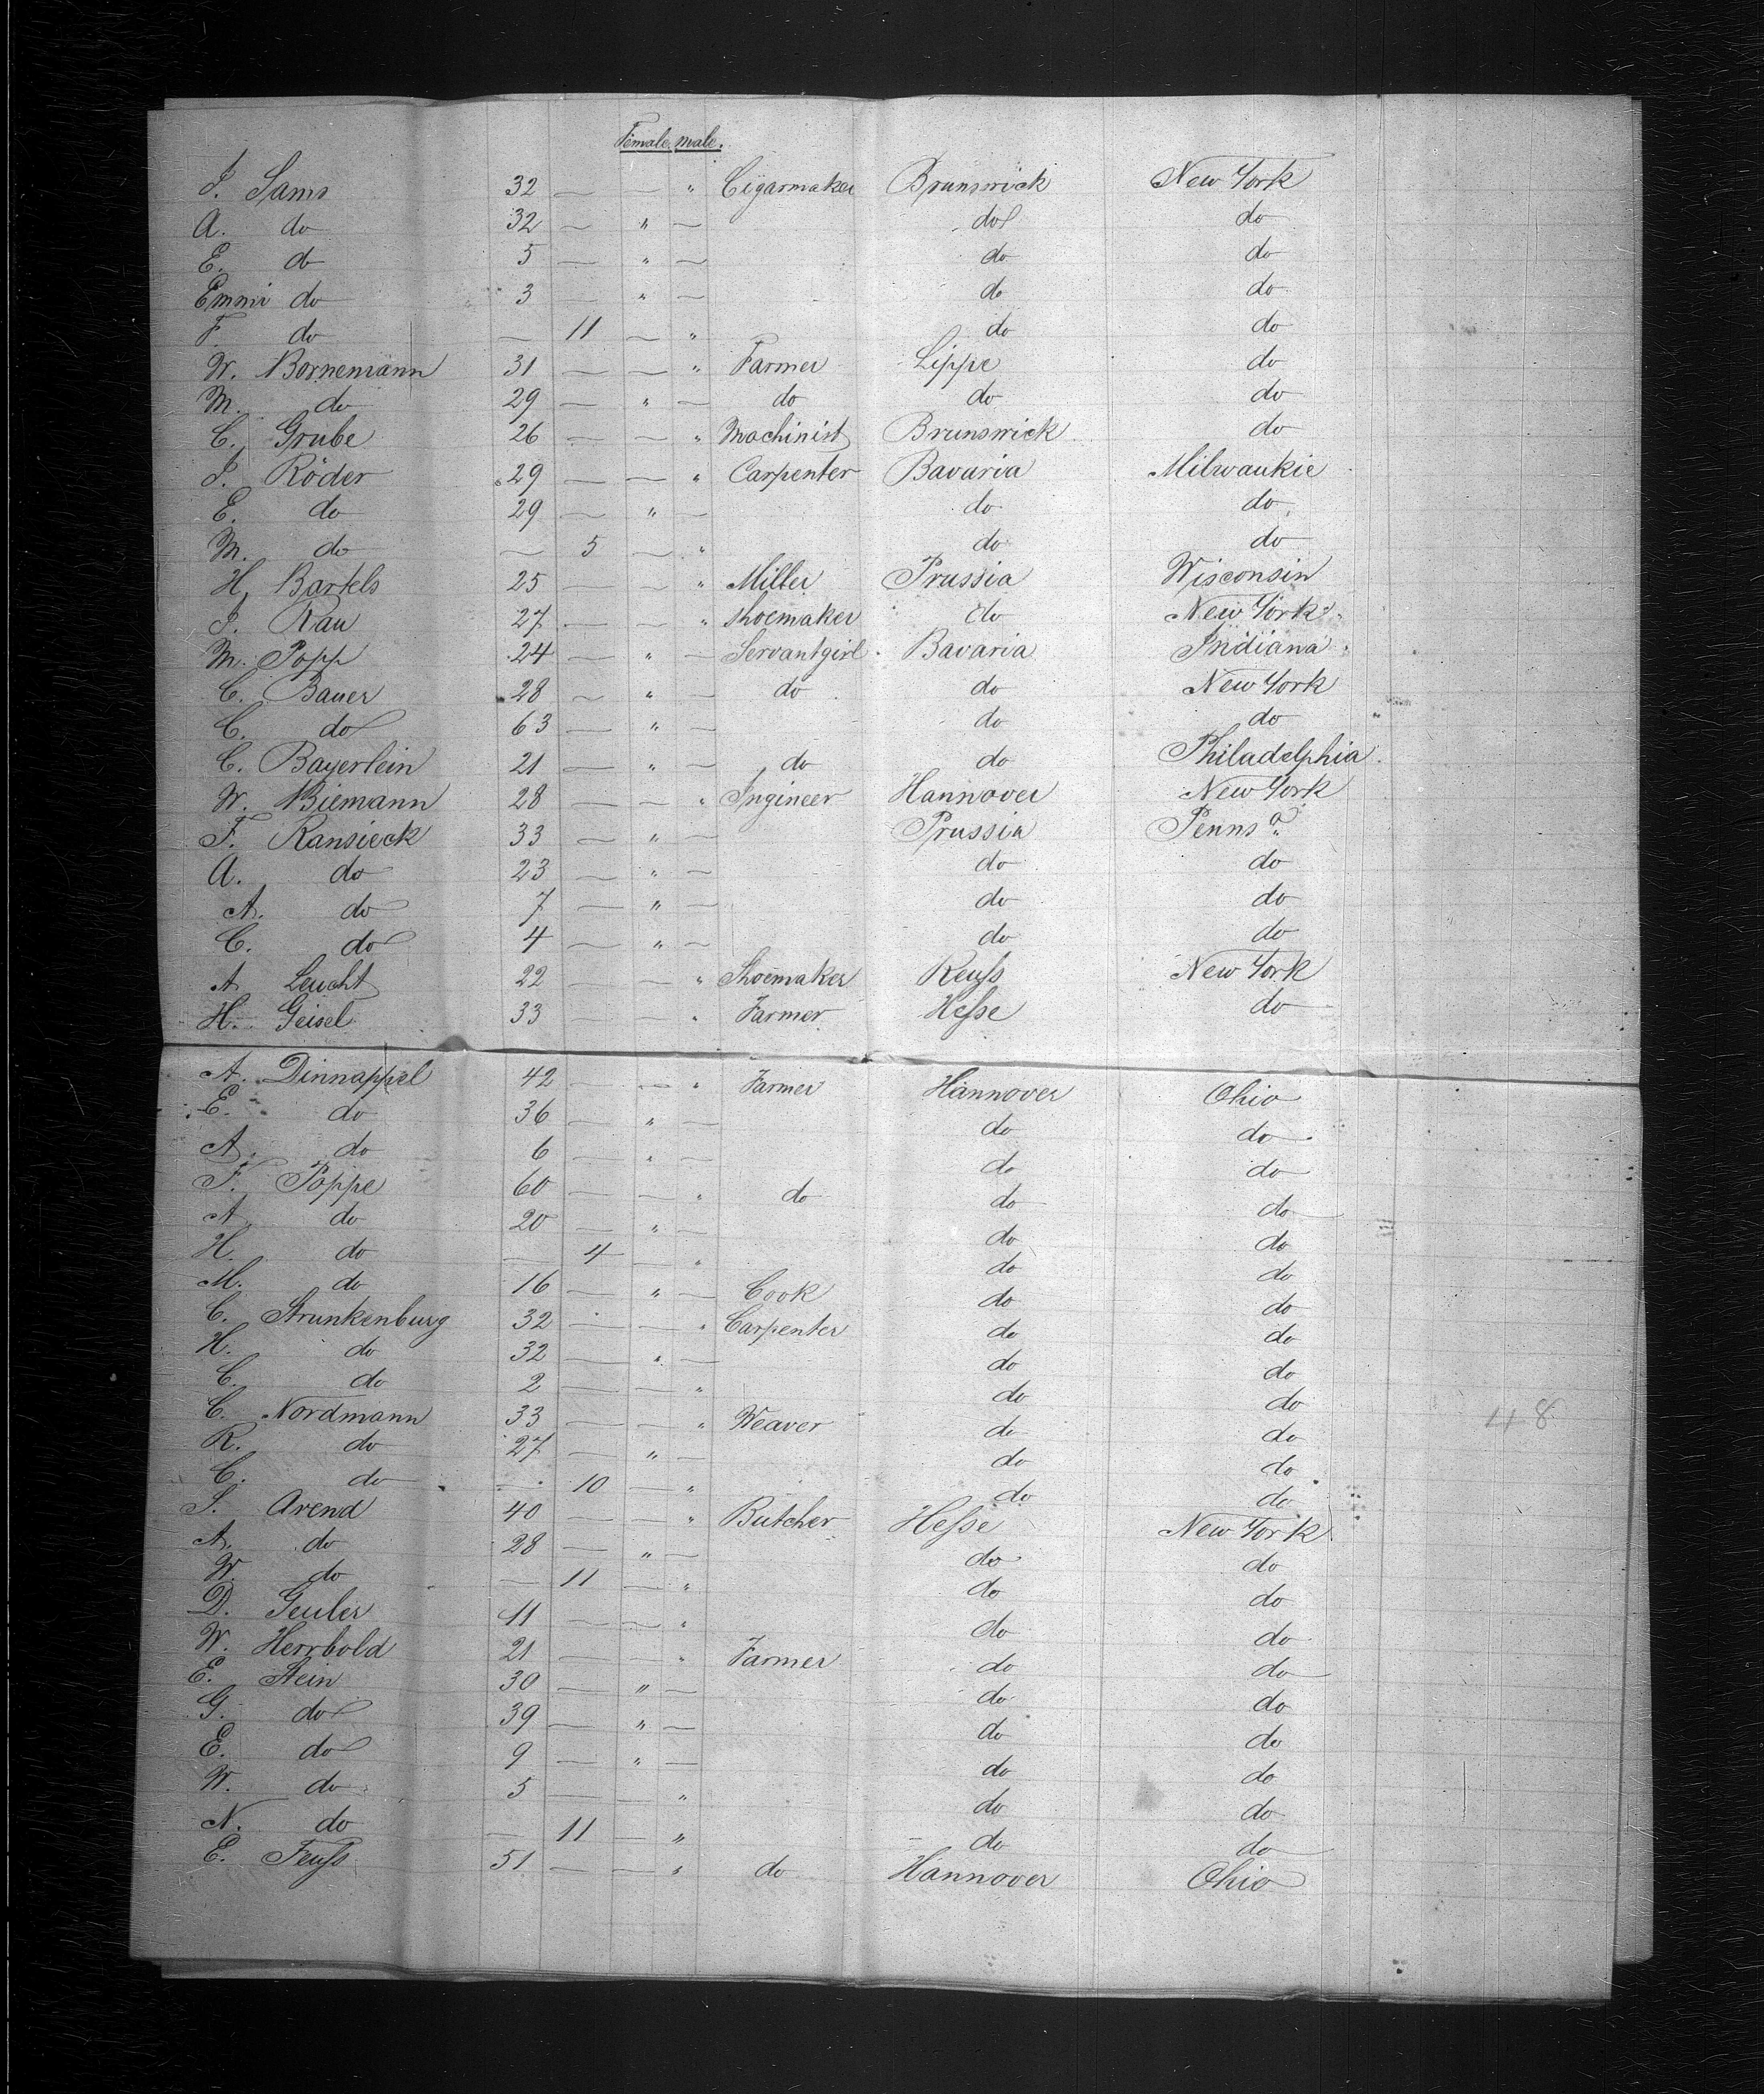 Female male.
J. Sams 32 — — " Cigarmaker Brunswick New York
A. do 32 — " — do do
E. do 5 — " — do do
Emmi do 3 — " — do do
F. do — 11 — " do do
W. Bornemann 31 — — " Farmer Lippe do
M. do 29 — " — do do do
C. Grube 26 — — " Machinist Brunswick do
J. Röder 29 — — " Carpenter Bavaria Milwaukie
E. do 29 — " — do do
M. do — 5 — " do do
H. Bartels 25 — — " Miller Prussia Wisconsin
J. Rau 27 — — " Shoemaker do New York
M. Popp 24 — " — Servantgirl Bavaria Indiana
C. Bauer 28 — " — do do New York
C. do 63 — " — do do
C. Bayerlein 21 — " — do do Philadelphia
W. Niemann 28 — — " Ingineer Hannover New York
F. Ransieck 33 — " — Prussia Pennsa.
A. do 23 — " — do do
A. do 7 — " — do do
C. do 4 — " — do do
A. Leucht 22 — — " Shoemaker Reuss New York
H. Geisel 33 — — " Farmer Hesse do
A. Dinnappel 42 — — " Farmer Hannover Ohio
E. do 36 — " — do do
A. do 6 — " — do do
F. Poppe 60 — — " do do do
A. do 20 — " — do do
H. do — 4 — " do do
M. do 16 — " — Cook do do
C. Strunkenburg 32 — — " Carpenter do do
H. do 32 — " — do do
C. do 2 — — " do do
C. Nordmann 33 — — " Weaver do do
R. do 27 — " — do do
C. do — 10 — " do do
S. Arend 40 — — " Butcher Hesse New York
A. do 28 — " — do do
W. do — 11 — " do do
D. Geuler 11 — — " do do
W. Herrbold 21 — — " Farmer do do
E. Stein 30 — " — do do
G. do 39 — " — do do
E. do 9 — " — do do
W. do 5 — — " do do
N. do — 11 — " do do
E. Feuss 51 — — " do Hannover Ohio
48